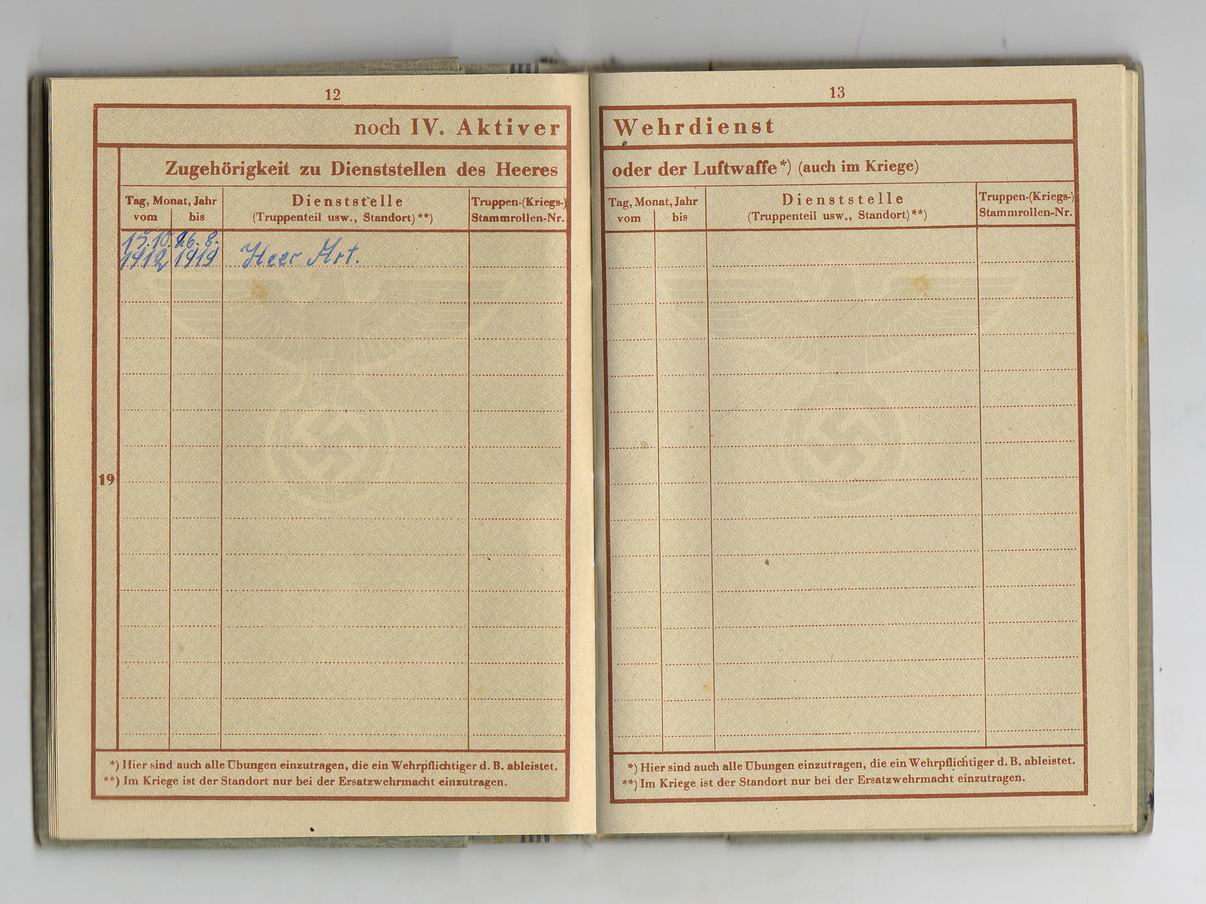 12
noch IV. Aktiver
Zugehörigkeit zu Dienststellen des Heeres
Tag, Monat, Jahr
vom bis
Dienststelle
(Truppenteil usw., Standort)**)
Truppen-(Kriegs-)
Stammrollen-Nr.
15.10. 26.8.
1912 1919 Heer Art.
19
*) Hier sind auch alle Übungen einzutragen, die ein Wehrpflichtiger d. B. ableistet.
**) Im Kriege ist der Standort nur bei der Ersatzwehrmacht einzutragen.
13
Wehrdienst
oder der Luftwaffe*) (auch im Kriege)
Tag, Monat, Jahr
vom bis
Dienststelle
(Truppenteil usw., Standort)**)
Truppen-(Kriegs-)
Stammrollen-Nr.
*) Hier sind auch alle Übungen einzutragen, die ein Wehrpflichtiger d. B. ableistet.
**) Im Kriege ist der Standort nur bei der Ersatzwehrmacht einzutragen.